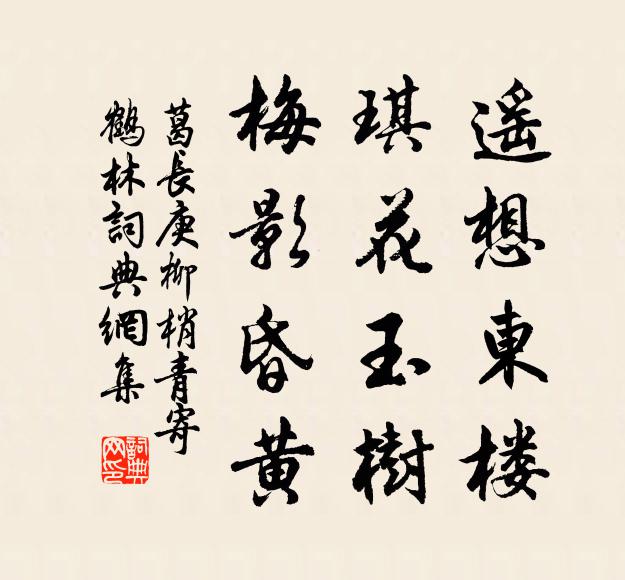 遥想東楼
琪花玉樹
梅影昏黄
葛長庚柳梢青寄
鶴林詞典網集
詞典
网印